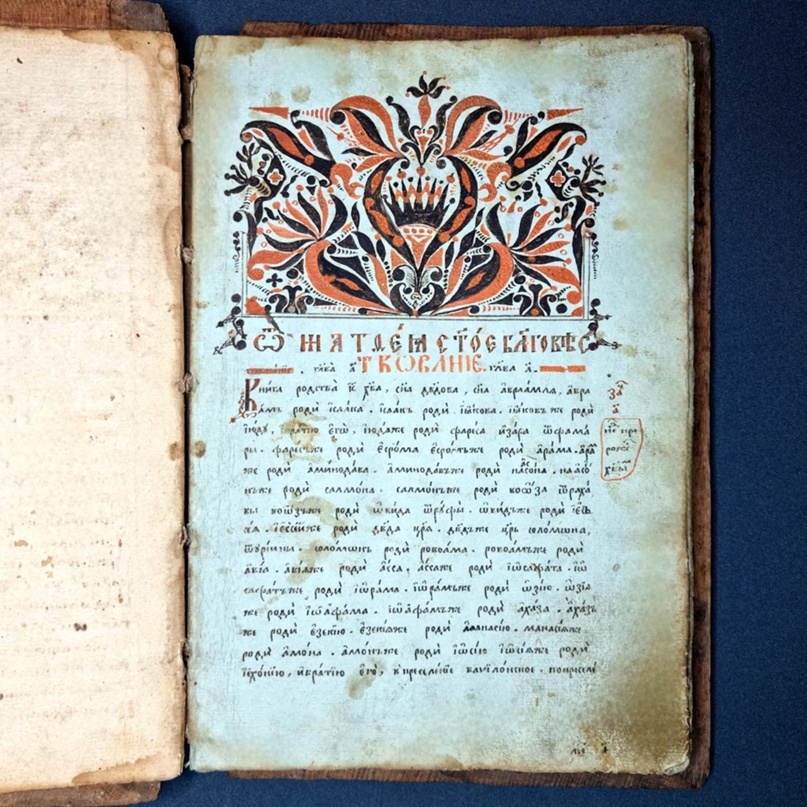 Ѿ МАТѲЕ́Ѧ СТ҃О́Е БЛ҃ГОВѢС
ТКОВАНІЕ.
глава̀ а҃ глава а҃.
Книга родства І҃с х҃ва, сн҃а дв҃дова, сн҃а авраамлѧ, авра
а́мъ родѝ ісаака. ісаакъ родѝ іа́кова. іа́ковъ же родѝ
іюду, братїю его̀, іюдаже родѝ фареса изара ѿфама
ры. фаресъже родѝ есро́ма есромъже родѝ арама. ара
же родѝ аминода́ва. аминодавъже родѝ наасона. наасо́
нъже родѝ салмо́на. салмонъже родѝ воо́за ѿраха
вы воо́зъже родѝ ѡвида ѿруфы. ѡвидъже родѝ іес
се́а. іессе́йже родѝ дв҃да цр҃ѧ. дв҃дъже цр҃ь соломѡна,
ѿурїины. соломонъ родѝ ровоама. ровоамъже родѝ
авїа. авїаже родѝ а́сса, а́ссаже родѝ іѡсафата. іѡ
сафатъже родѝ іѡрама. іѡрамъже родѝ ѡзїю. ѡзїа
же родѝ іѡаѳама. іѡаѳамъже родѝ ахаза. ахазъ
же родѝ езекїю. езекїаже родѝ манасїю. манасїаже
родѝ амона. амонъже родѝ іѡсїю іѡсїаже родѝ
іехонїю, ибратїю его̀, в преселе́нїе вавилонское. попреселе́
за҃
а҃
не при
рож
хв҃ы